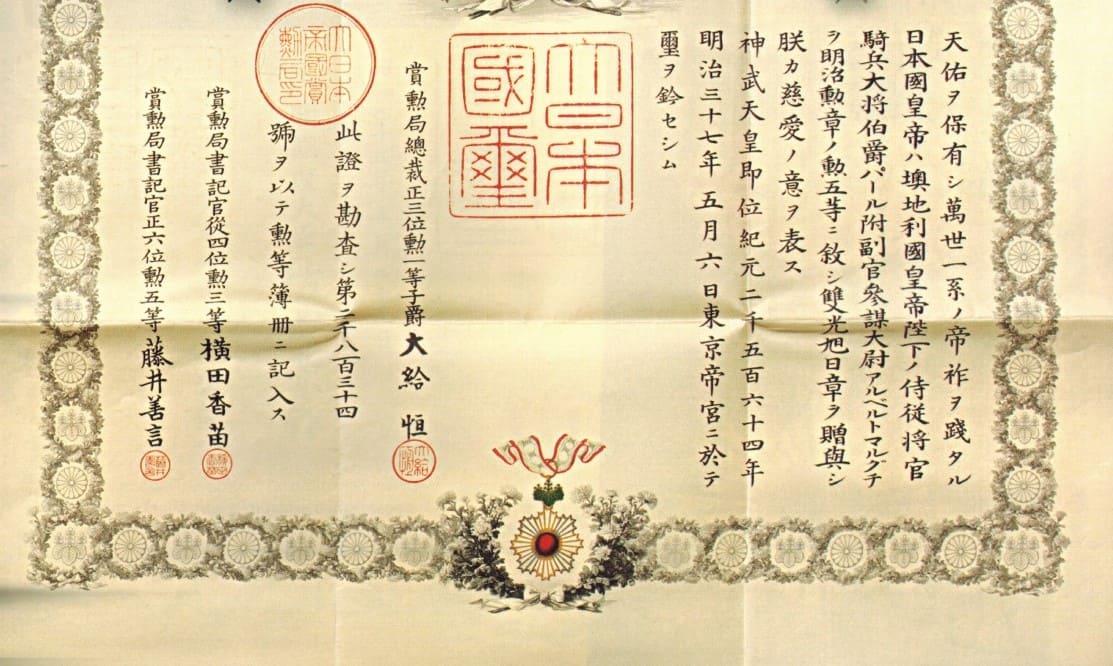 天佑ヲ保有シ萬世一系ノ帝祚ヲ踐タル
日本國皇帝ハ墺地利國皇帝陛下ノ侍從将官
騎兵大将伯爵パール附副官參謀大尉アルベルトマルグチ
ヲ明治勲章ノ勲五等ニ敘シ雙光旭日章ヲ贈與シ
朕カ慈愛ノ意ヲ表ス
神武天皇即位紀元二千五百六十四年
明治三十七年五月六日東京帝宮ニ於テ
璽ヲ鈐セシム
大日本
國璽
賞勲局總裁正三位勲一等子爵大給恒
此證ヲ勘査シ第二千八百三十四
號ヲ以テ勲等簿册ニ記入ス
大日本
帝國賞
勲局印
賞勲局書記官從四位勲三等横田香苗
賞勲局書記官正六位勲五等藤井善言